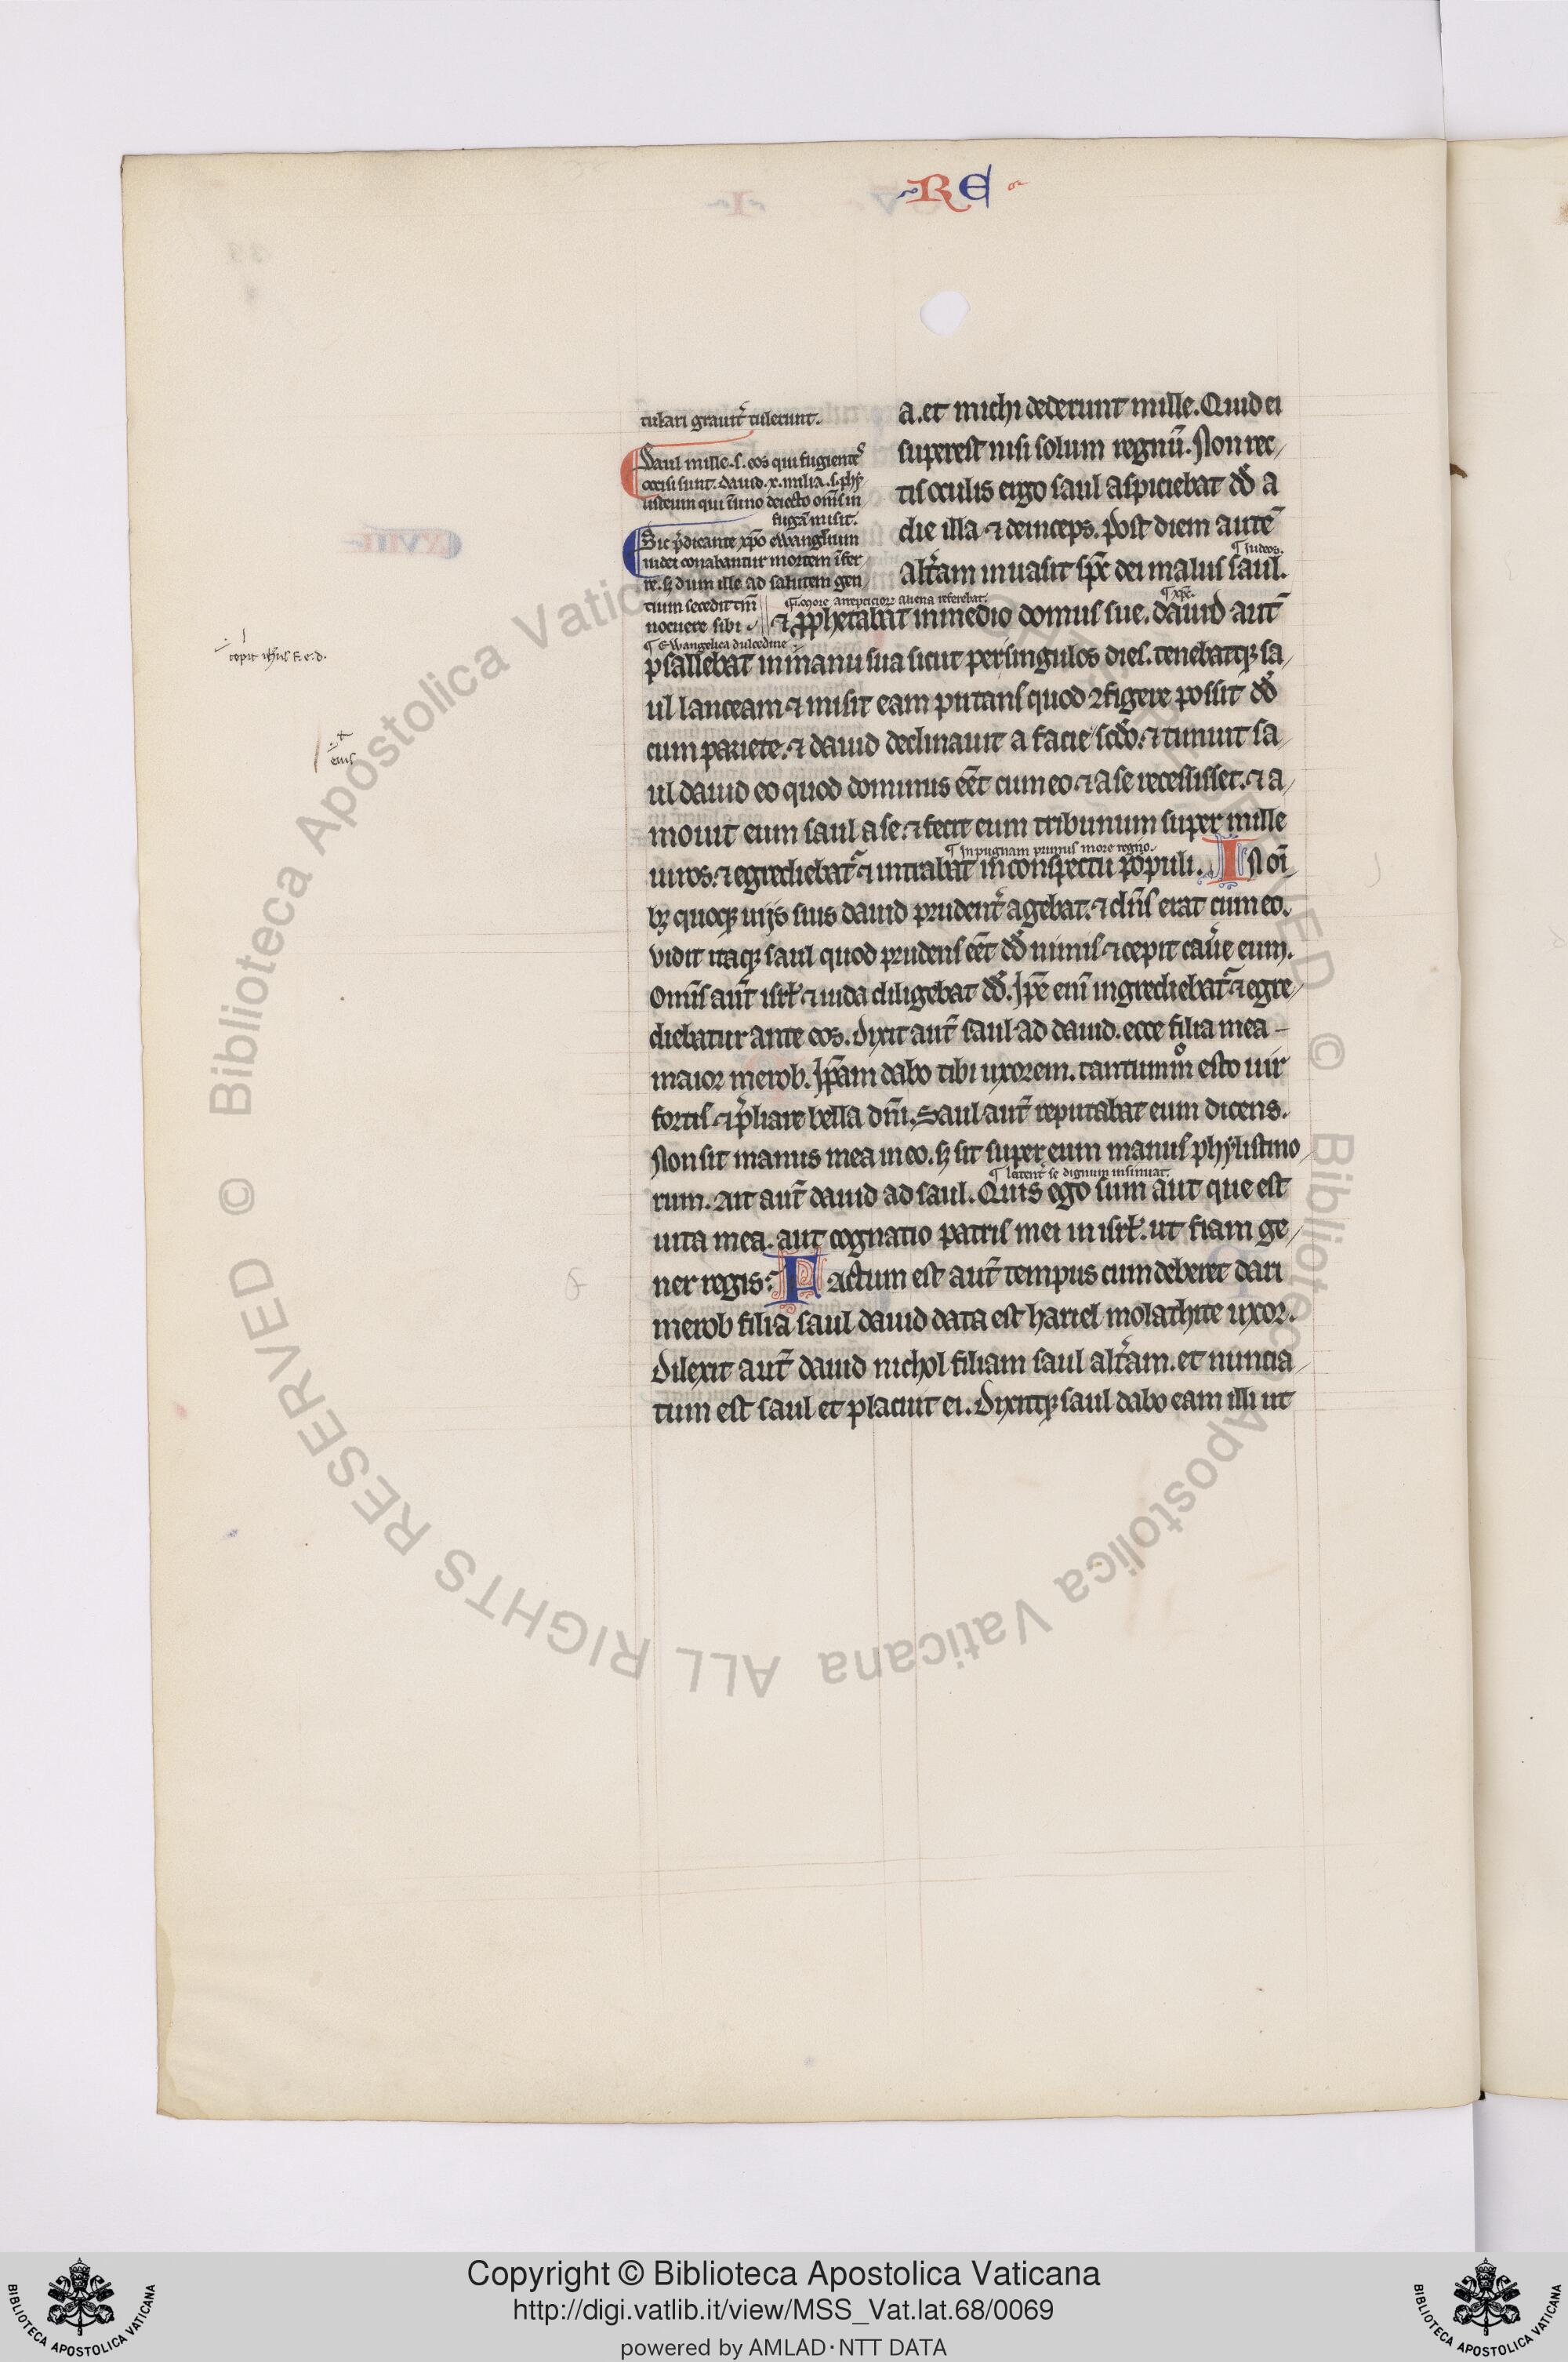 RE
tulari grauit̃ tulerunt.
Saul mille .s. eos qui fugientes
occisi sunt. dauid .x. milia .s. phy
listeum qui ĩ uno deiecto om̃s in
fugã misit.
Sic p̃dicante xp̃o ewangl̃ium
iudei conabantur mortem ĩfer
re. s; dum ille ad salutem gen
tium secedit tm̃
nocuere sibi
a. et michi dederunt mille. Quid ei
superest nisi solum regnũ. Non rec
tis oculis ergo saul aspiciebat dd̃ a
die illa ⁊ deinceps. Post diem autẽ
¶ Iudeos.
alt̃am inuasit sp̃c dei malus saul.
¶ More arrepticiorum aliena referebat.
¶ xp̃c.
⁊ ꝓphetabat in medio domus sue. dauid aut̃
¶ Ewangelica dulcedine
psallebat in manu sua sicut per singulos dies. tenebatqꝫ sa
ul lanceam ⁊ misit eam putans quod ꝯfigere possit dd̃
cum pariete. ⁊ dauid declinauit a facie sc̃do. ⁊ timuit sa
ul dauid eo quod dominus eẽt cum eo ⁊ a se recessisset. ⁊ a
mouit eum saul a se. ⁊ fecit eum tribunum super mille
¶ In pugnam primus more regio.
uiros. ⁊ egrediebat̃ ⁊ intrabat in conspectu populi. IN oĩ
bꝫ quoqꝫ uijs suis dauid prudent̃ agebat. ⁊ dñs erat cum eo.
vidit itaqꝫ saul quod prudens eẽt dd̃ nimis ⁊ cepit cau̾e eum.
Omĩs aut̃ isrl̃ ⁊ iuda diligebat dd̃. Ip̃e enĩ ingrediebat̃ ⁊ egre
diebatur ante eos. dixit aut̃ saul ad dauid. ecce filia mea
maior merob. Ip̃am dabo tibi uxorem. tantummͦ esto uir
fortis ⁊ p̃liare bella dñi. Saul aut̃ reputabat eum dicens.
Non sit manus mea in eo. s; sit super eum manus phylistino
¶ latent̃ se dignum insinuat.
rum. Ait aut̃ dauid ad saul. Quis ego sum aut que est
uita mea. aut cognatio patris mei in isrl̃. ut fiam ge
ner regis. FActum est aut̃ tempus cum deberet dari
merob filia saul dauid data est hariel molathite uxor.
dilexit aut̃ dauid nichol filiam saul alt̃am. et nuncia
tum est saul et placuit ei. Dixitqꝫ saul dabo eam illi ut
eius
Copyright © Biblioteca Apostolica Vaticana
http://digi.vatlib.it/view/MSS_Vat.lat.68/0069
powered by AMLAD · NTT DATA
BIBLIOTECA APOSTOLICA VATICANA
BIBLIOTECA APOSTOLICA VATICANA
© Biblioteca Apostolica Vaticana ALL RIGHTS RESERVED